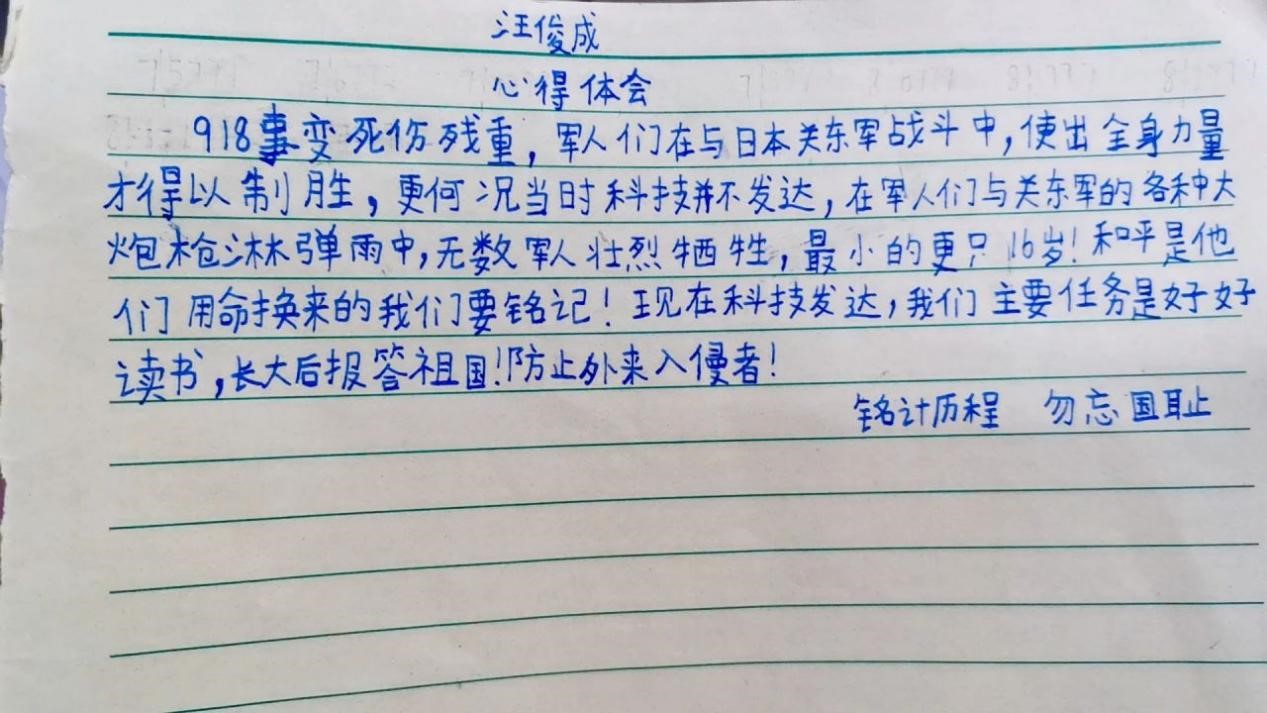 汪俊成
心得体会
918事变死伤残重，军人们在与日本关东军战斗中，使出全身力量
才得以制胜，更何况当时科技并不发达，在军人们与关东军的各种大
炮枪淋弹雨中，无数军人壮烈牺牲，最小的更只16岁！和平是他
们用命换来的我们要铭记！现在科技发达，我们主要任务是好好
读书，长大后报答祖国！防止外来入侵者！
铭计历程 勿忘国耻